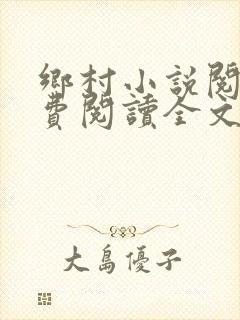 鄉村小說閱
費閱讀全文
大島優子